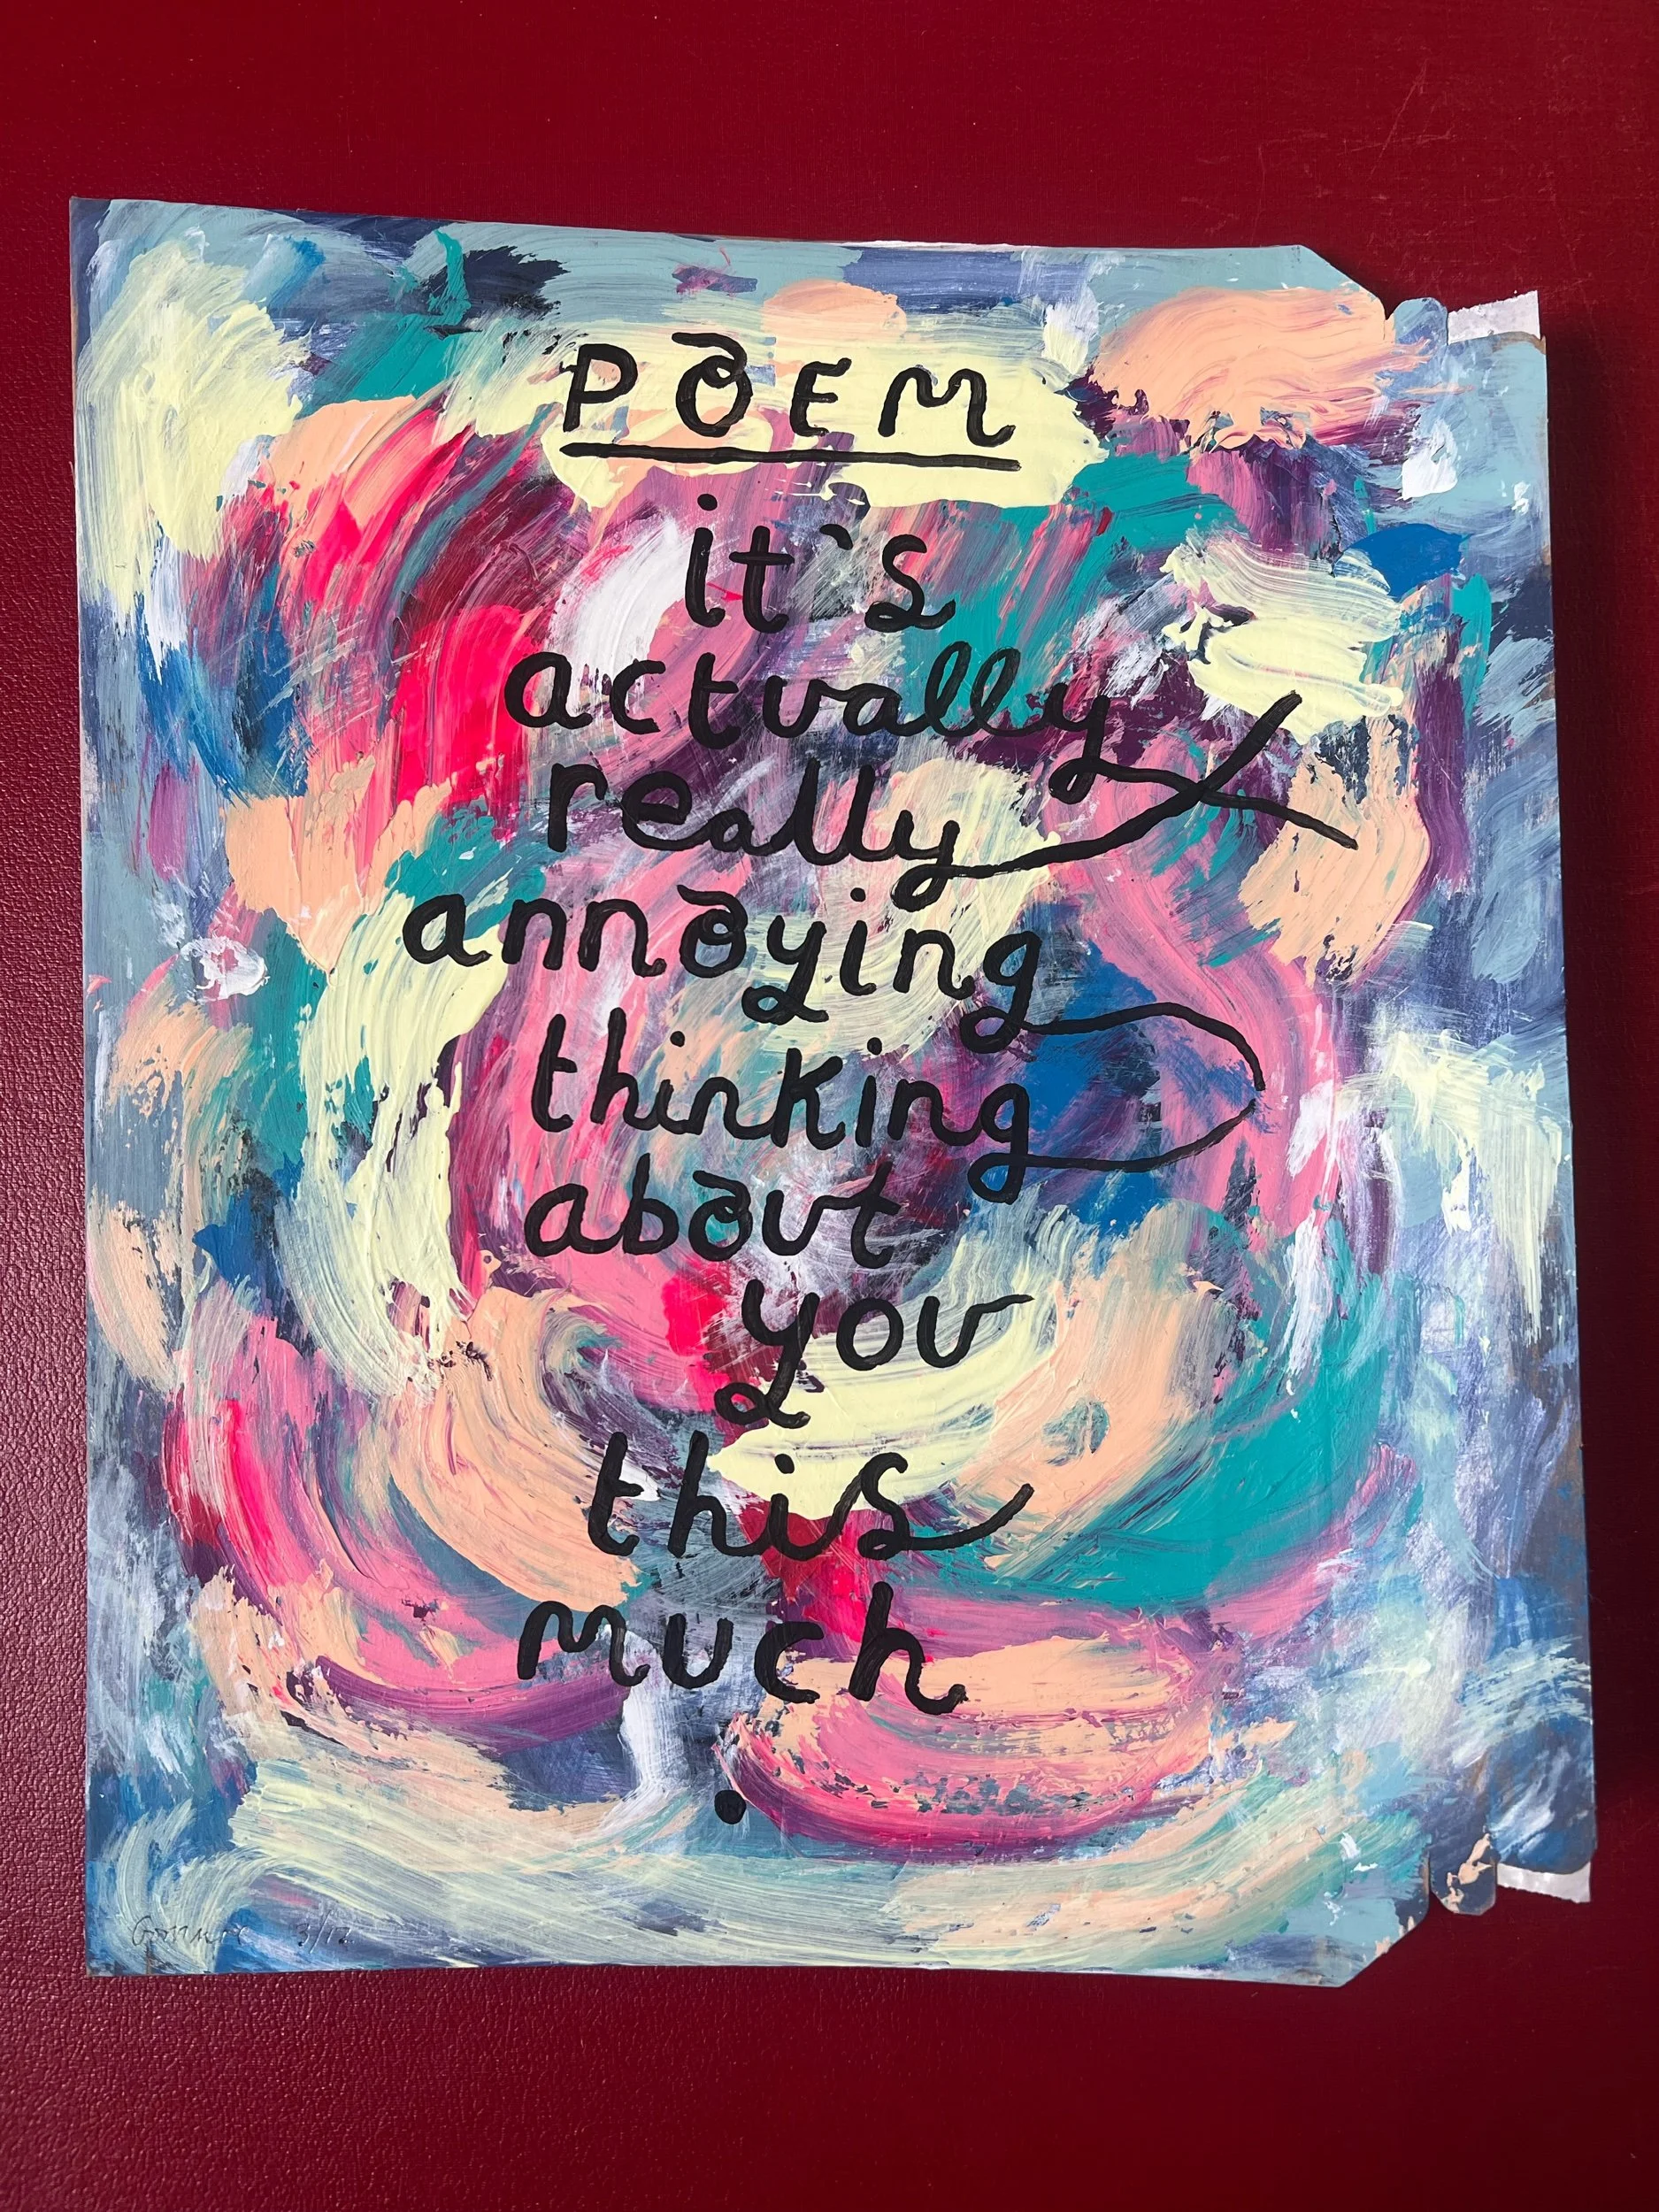 POEM
it's
actually
really
annoying
thinking
about
you
this
much
.
3/12